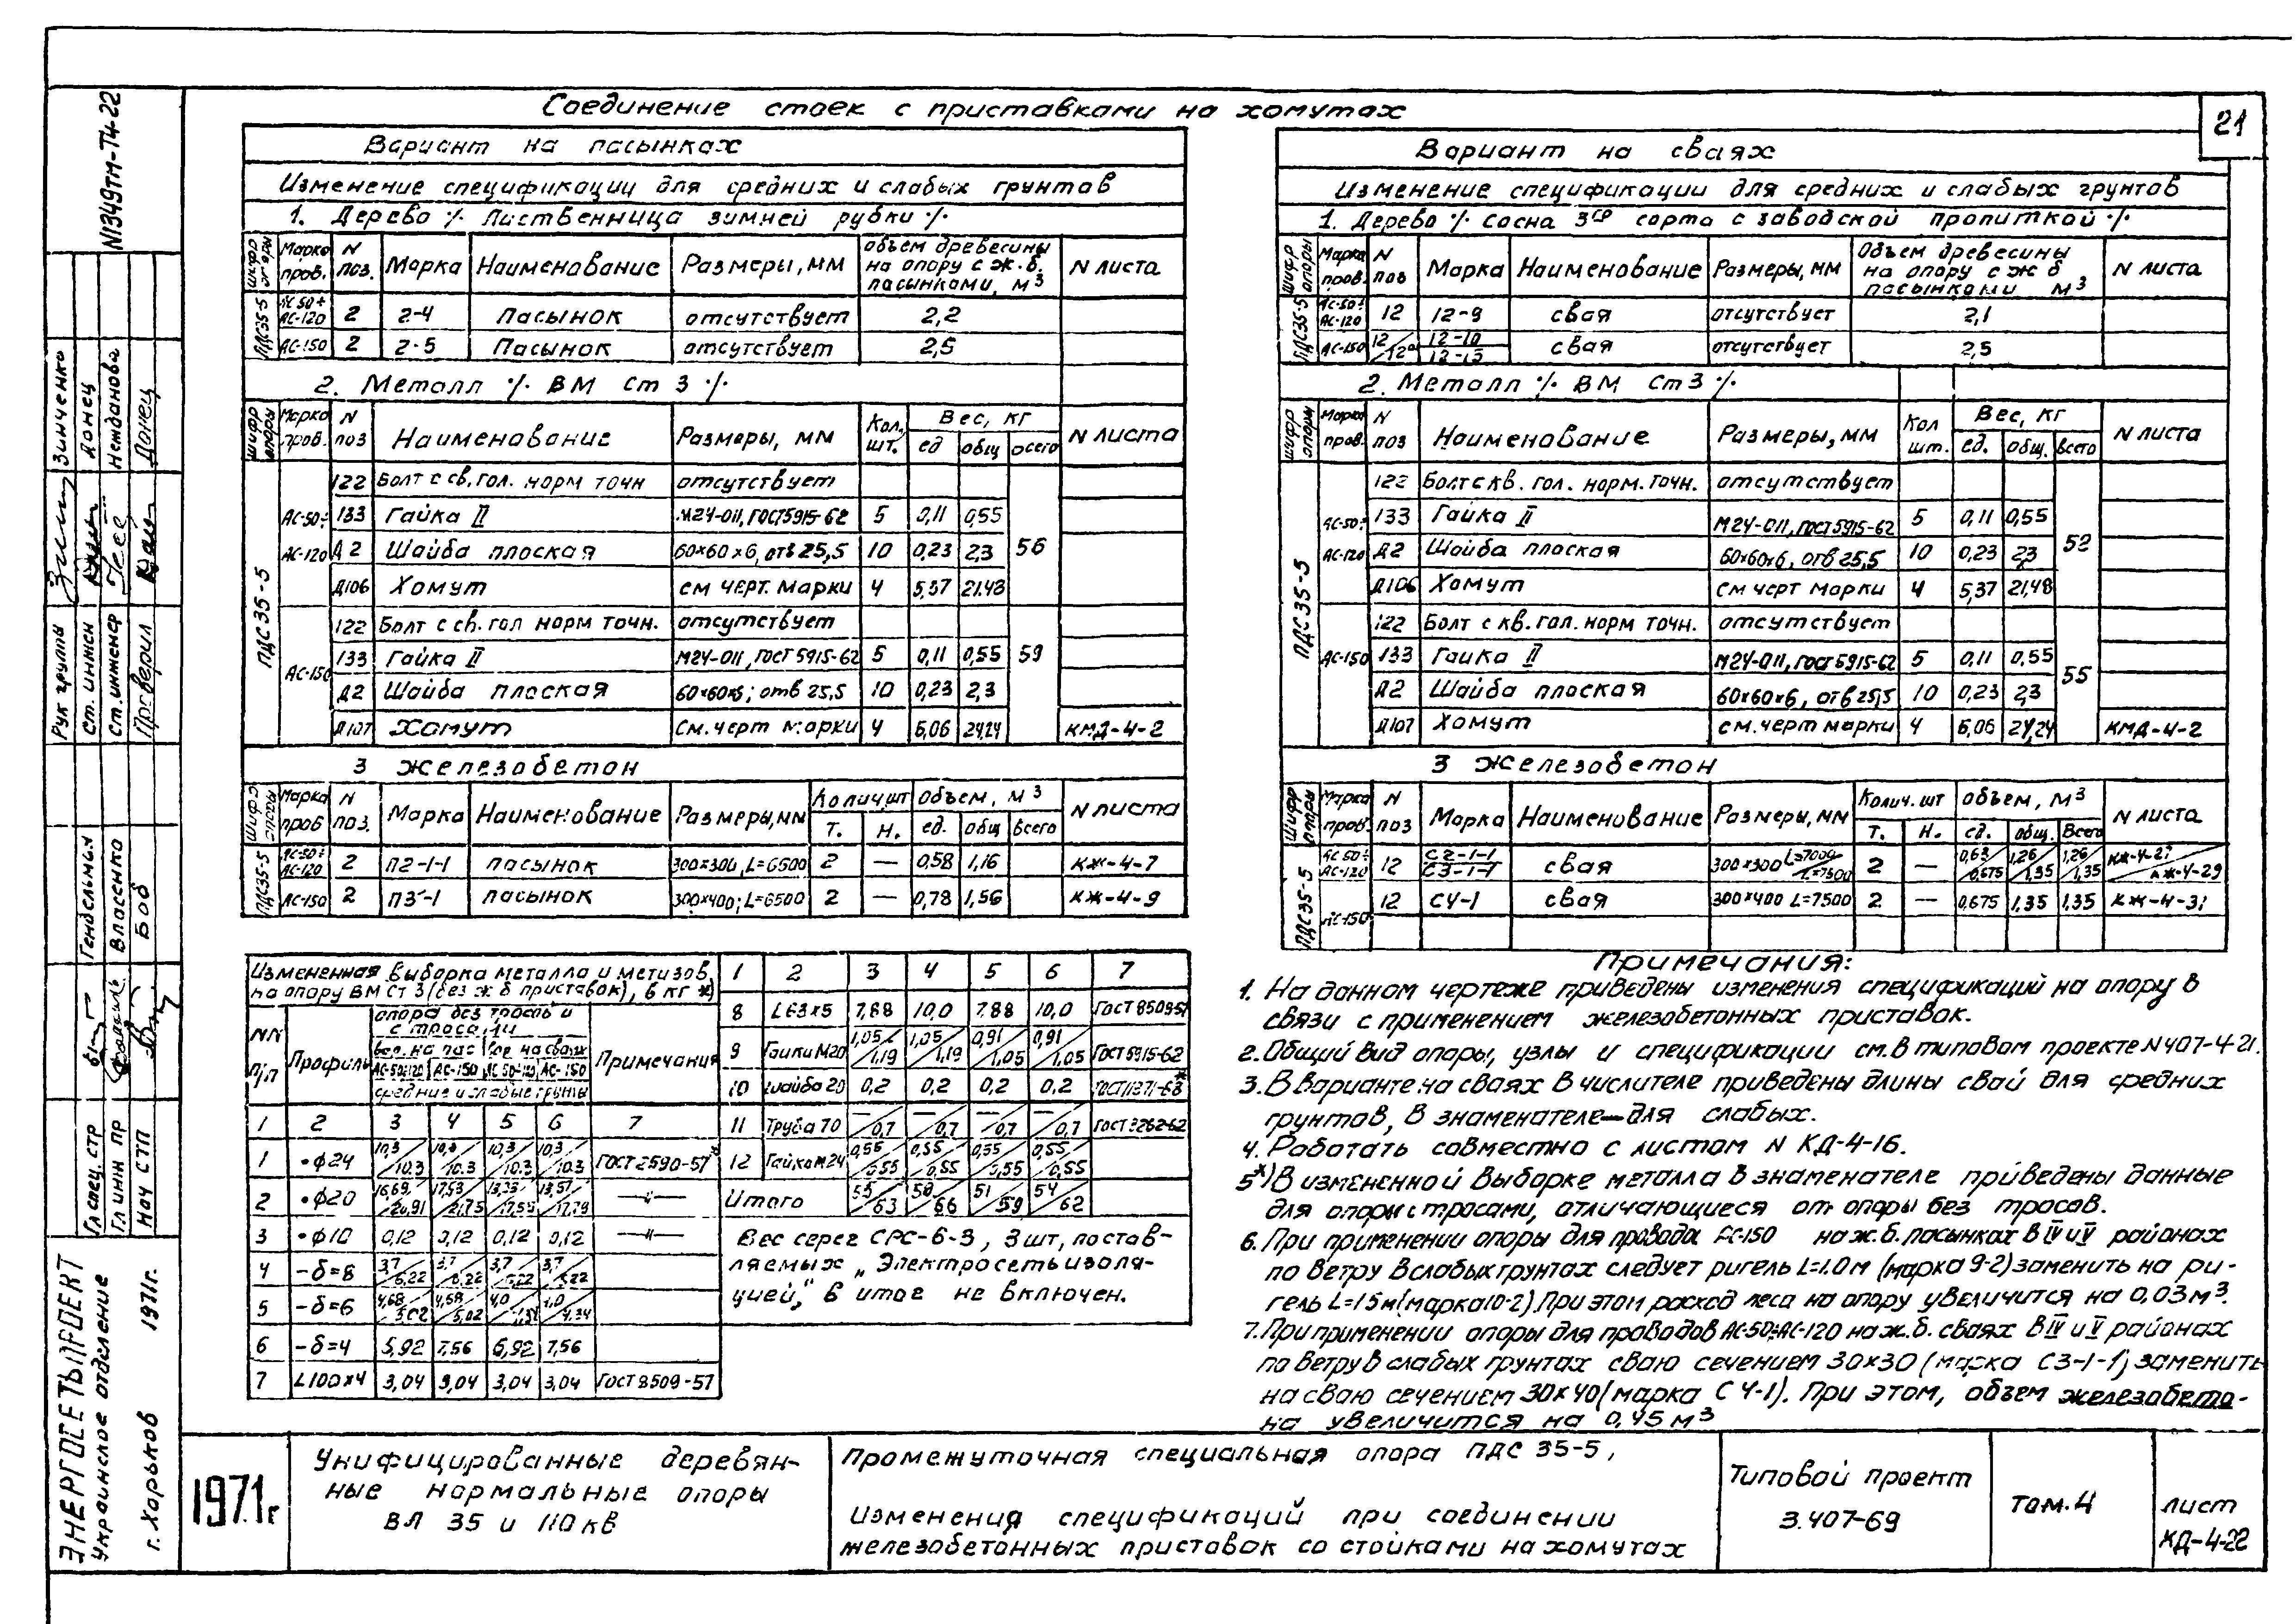 Соединение стоек с приставками на хомутах
21
N1349тм-Т4-22
Вариант на пасынках
Изменение спецификации для средних и слабых грунтов
1. Дерево ⁒ Лиственница зимней рубки ⁒
Шифр опоры | Марка пров. | N поз. | Марка | Наименование | Размеры, мм | Объем древесины на опору с ж.б. пасынками, м³ | N листа
ПДС35-5 | АС-50÷ АС-120 | 2 | 2-4 | Пасынок | отсутствует | 2,2
АС-150 | 2 | 2-5 | Пасынок | отсутствует | 2,5
2. Металл ⁒ ВМ Ст 3 ⁒
Шифр опоры | Марка пров. | N поз | Наименование | Размеры, мм | Кол. шт. | Вес, кг | ед | общ | всего | N листа
ПДС35-5 | АС-50÷ АС-120
122 | Болт с кв. гол. норм точн | отсутствует
133 | Гайка II | М24-011, ГОСТ5915-62 | 5 | 0,11 | 0,55 | 56
Д2 | Шайба плоская | 60х60х6, отв 25,5 | 10 | 0,23 | 2,3
Д106 | Хомут | см черт. марки | 4 | 5,37 | 21,48
АС-150
122 | Болт с кв. гол норм точн. | отсутствует
133 | Гайка II | М24-011, ГОСТ5915-62 | 5 | 0,11 | 0,55 | 59
Д2 | Шайба плоская | 60х60х6; отв 25,5 | 10 | 0,23 | 2,3
Д107 | Хомут | См. черт марки | 4 | 6,06 | 24,24 | КМД-4-2
3 Железобетон
Шифр опоры | Марка пров | N поз. | Марка | Наименование | Размеры, мм | Колич. шт | Т. | Н. | Объем, м³ | ед. | общ | всего | N листа
ПДС35-5 | АС-50÷ АС-120 | 2 | П2-1-1 | пасынок | 300х300, L=6500 | 2 | — | 0,58 | 1,16 | КЖ-4-7
АС-150 | 2 | П3-1 | пасынок | 300х400; L=6500 | 2 | — | 0,78 | 1,56 | КЖ-4-9
Вариант на сваях
Изменение спецификации для средних и слабых грунтов
1. Дерево ⁒ сосна 3ср сорта с заводской пропиткой ⁒
Шифр опоры | Марка пров. | N поз | Марка | Наименование | Размеры, мм | Объем древесины на опору с ж б пасынками м³ | N листа
ПДС35-5 | АС-50÷ АС-120 | 12 | 12-9 | свая | отсутствует | 2,1
АС-150 | 12/12а | 12-10/12-15 | свая | отсутствует | 2,5
2. Металл ⁒ ВМ Ст 3 ⁒
Шифр опоры | Марка пров. | N поз | Наименование | Размеры, мм | Кол шт. | Вес, кг | ед. | общ. | всего | N листа
ПДС35-5 | АС-50÷ АС-120
122 | Болт с кв. гол. норм. точн. | отсутствует
133 | Гайка II | М24-011, ГОСТ5915-62 | 5 | 0,11 | 0,55 | 52
Д2 | Шайба плоская | 60х60х6, отв 25,5 | 10 | 0,23 | 2,3
Д106 | Хомут | см черт марки | 4 | 5,37 | 21,48
АС-150
122 | Болт с кв. гол. норм точн. | отсутствует
133 | Гайка II | М24-011, ГОСТ5915-62 | 5 | 0,11 | 0,55 | 55
Д2 | Шайба плоская | 60х60х6, отв 25,5 | 10 | 0,23 | 2,3
Д107 | Хомут | см. черт марки | 4 | 6,06 | 24,24 | КМД-4-2
3 Железобетон
Шифр опоры | Марка пров. | N поз | Марка | Наименование | Размеры, мм | Колич. шт | Т. | Н. | объем, м³ | ед. | общ. | Всего | N листа
ПДС35-5 | АС 50÷ АС-120 | 12 | С2-1-1/С3-1-1 | свая | 300х300 L=7000/L=7500 | 2 | — | 0,63/0,675 | 1,26/1,35 | 1,26/1,35 | КЖ-4-27/КЖ-4-29
АС-150 | 12 | С4-1 | свая | 300х400 L=7500 | 2 | — | 0,675 | 1,35 | 1,35 | КЖ-4-31
Измененная выборка металла и метизов
на опору ВМ Ст 3 (без ж б приставок), в кг *)
NN п/п | Профиль | опора без троса и с тросами | вар. на пас | вар на сваях | Примечания
АС-50÷120 | АС-150 | АС 50÷120 | АС-150
средние и слабые грунты
1 | 2 | 3 | 4 | 5 | 6 | 7
1 | •ф24 | 10,3/10.3 | 10,3/10.3 | 10,3/10.3 | 10,3/10.3 | ГОСТ2590-57*
2 | •ф20 | 16,69/20,91 | 17,53/21,75 | 13,33/17,55 | 13,57/17,79 | —"—
3 | •ф10 | 0,12 | 0,12 | 0,12 | 0,12 | —"—
4 | -δ=8 | 3,7/6,22 | 3,7/6,22 | 3,7/6,22 | 3,7/6,22
5 | -δ=6 | 4,68/5,02 | 4,68/5,02 | 4,0/4,34 | 4,0/4,34
6 | -δ=4 | 5,92 | 7,56 | 6,92 | 7,56
7 | L100х4 | 3,04 | 3,04 | 3,04 | 3,04 | ГОСТ8509-57
1 | 2 | 3 | 4 | 5 | 6 | 7
8 | L63х5 | 7,88 | 10,0 | 7.88 | 10,0 | ГОСТ8509-57
9 | Гайки М20 | 1,05/1,19 | 1,05/1,19 | 0,91/1,05 | 0,91/1,05 | ГОСТ5915-62
10 | шайба 20 | 0,2 | 0,2 | 0,2 | 0,2 | ГОСТ11371-68*
11 | Труба 70 | —/0,7 | —/0,7 | —/0,7 | —/0,7 | ГОСТ3262-62
12 | Гайка М24 | 0,55/0,55 | 0,55/0,55 | 0,55/0,55 | 0,55/0,55
Итого | 55/63 | 58/66 | 51/59 | 54/62
Вес серег СРС-6-3, 3шт, постав-
ляемых „Электросетьизоля-
цией," в итог не включен.
Примечания:
1. На данном чертеже приведены изменения спецификаций на опору в
связи с применением железобетонных приставок.
2. Общий вид опоры, узлы и спецификации см. в типовом проекте N407-4-21.
3. В варианте на сваях в числителе приведены длины свай для средних
грунтов, в знаменателе—для слабых.
4. Работать совместно с листом N КД-4-16.
5*) В измененной выборке металла в знаменателе приведены данные
для опоры с тросами, отличающиеся от опоры без тросов.
6. При применении опоры для провода АС-150 на ж.б. пасынках в IV и V районах
по ветру в слабых грунтах следует ригель L=1.0м (марка 9-2) заменить на ри-
гель L=15м (марка 10-2). При этом расход леса на опору увеличится на 0,03м³.
7. При применении опоры для проводов АС-50÷АС-120 на ж.б. сваях в IV и V районах
по ветру в слабых грунтах сваю сечением 30х30 (марка С3-1-1) заменить
на сваю сечением 30х40 (марка С4-1). При этом, объем железобето-
на увеличится на 0,45м³
Рук группы | Зинченко
Ст. инжен | Донец
Ст. инженер | Нежданова
Проверил | Донец
Гл спец. стр | Гендельман
Гл инж пр | Власенко
Нач СТП | Боб
ЭНЕРГОСЕТЬПРОЕКТ
Украинское отделение
г. Харьков 1971г.
1971г
Унифицированные деревян-
ные нормальные опоры
ВЛ 35 и 110кв
Промежуточная специальная опора ПДС 35-5,
Изменения спецификаций при соединении
железобетонных приставок со стойками на хомутах
Типовой проект
3.407-69
том. 4
лист
КД-4-22